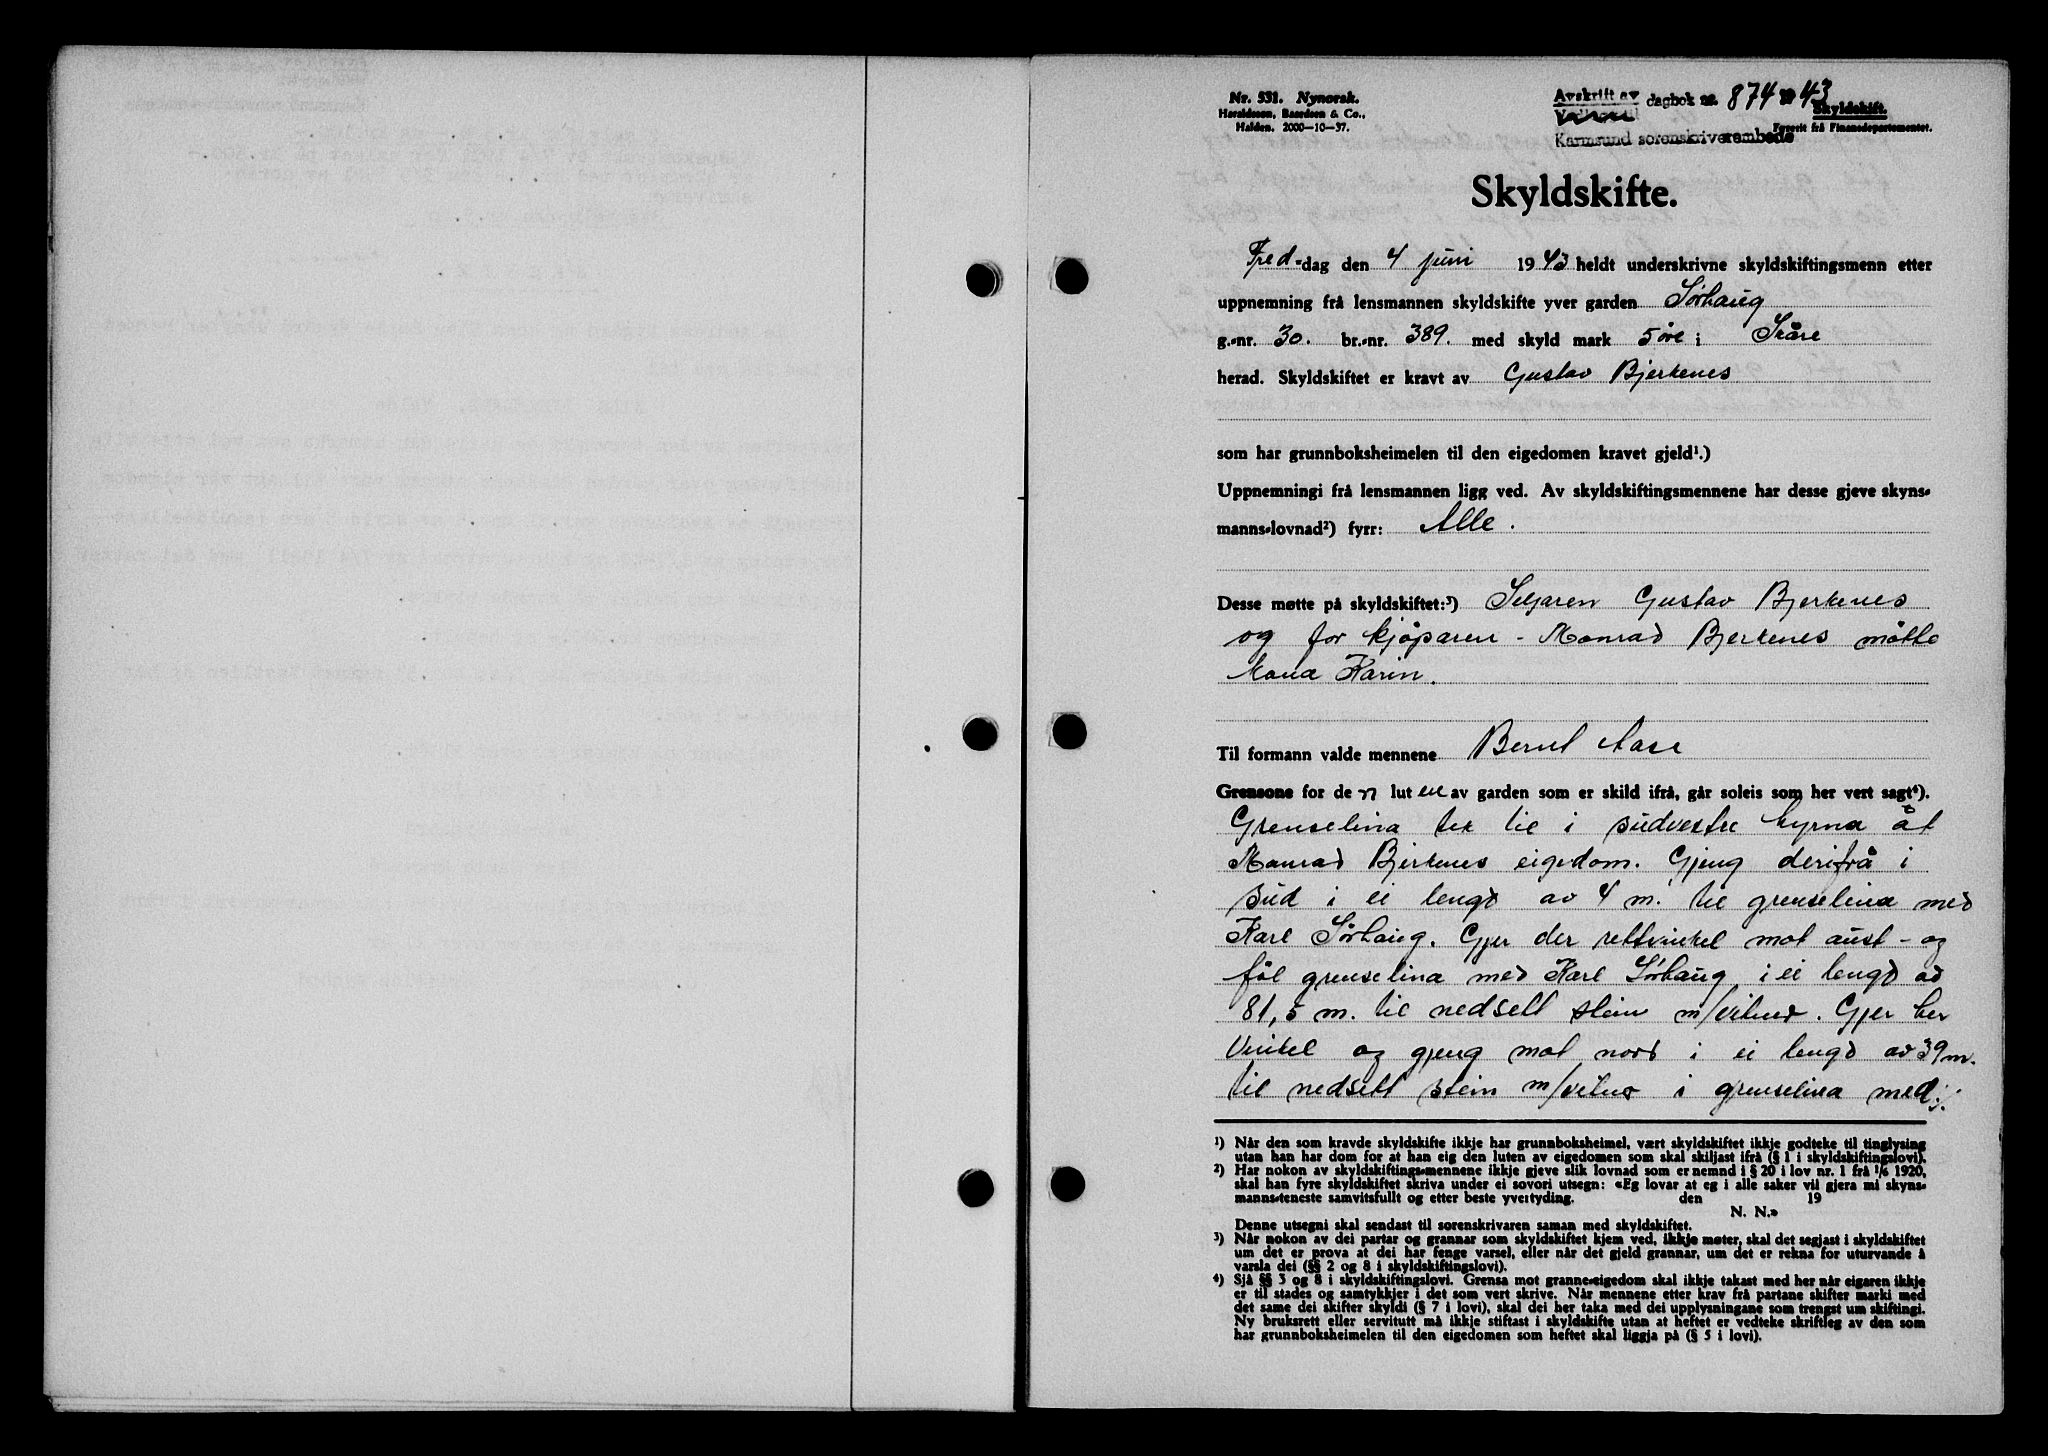 Nr. 531. Nynorsk.
Haraldssen, Baardsen & Co.,
Halden. 2000—10—37.
Avskrift av dagbok nr. 874 43
Skyldskift.
Karmsund sorenskriverembede
Fyresit frå Finansdepartementet.
Skyldskifte.
Fred-dag den 4 juni 1943 heldt underskrivne skyldskiftingsmenn etter
uppnemning frå lensmannen skyldskifte yver garden Sørhaug
g.-nr. 30. br.-nr. 389. med skyld mark 5 øre i Skåre
herad. Skyldskiftet er kravt av Gustav Bjerkenes
som har grunnboksheimelen til den eigedomen kravet gjeld¹.)
Uppnemningi frå lensmannen ligg ved. Av skyldskiftingsmennene har desse gjeve skyns-
manns-lovnad²) fyrr: Alle.
Desse møtte på skyldskiftet:³) Seljaren Gustav Bjerkenes
og for kjøparen - Monrad Bjerkenes møtte
kona Karin.
Til formann valde mennene Bernt Aase
Grensone for de n lut en av garden som er skild ifrå, går soleis som her vert sagt⁴).
Grenselina tek til i sudvestre hyrna åt
Monrad Bjerkenes eigedom. Gjeng derifrå i
sud i ei lengd av 4 m. til grenselina med
Karl Sørhaug. Gjer der rettvinkel mot aust - og
føl grenselina med Karl Sørhaug i ei lengd av
81,5 m. til nedsett stein m/vitner. Gjer her
vinkel og gjeng mot nord i ei lengd av 39 m.
til nedsett stein m/vitne i grenselina med ./.
¹) Når den som kravde skyldskifte ikkje har grunnboksheimel, vært skyldskiftet ikkje godteke til tinglysing
utan han har dom for at han eig den luten av eigedomen som skal skiljast ifrå (§ 1 i skyldskiftingslovi).
²) Har nokon av skyldskiftings-mennene ikkje gjeve slik lovnad som er nemnd i § 20 i lov nr. 1 frå 1/6 1920,
skal han fyre skyldskiftet skriva under ei sovori utsegn: «Eg lovar at eg i alle saker vil gjera mi skyns-
manns-teneste samvitsfullt og etter beste yvertyding. den 19
N. N.»
Denne utsegni skal sendast til sorenskrivaren saman med skyldskiftet.
³) Når nokon av dei partar og grannar som skyldskiftet kjem ved, ikkje møter, skal det segjast i skyldskiftet
um det er prova at dei har fenge varsel, eller når det gjeld grannar, um det er rekna for uturvande å
varsla dei (§§ 2 og 8 i skyldskiftingslovi).
⁴) Sjå §§ 3 og 8 i skyldskiftingslovi. Grensa mot granne-eigedom skal ikkje takast med her når eigaren ikkje
er til stades og samtykkjer i det som vert skrive. Når mennene etter krav frå partane skifter marki med
det same dei skifter skyldi (§ 7 i lovi), skal dei her taka med dei upplysningane som trengst um skiftingi.
Ny bruksrett eller servitutt må ikkje stiftast i skyldskifte utan at heftet er vedteke skriftleg av den som
har grunnboksheimelen til den eigedomen som heftet skal liggja på (§ 5 i lovi).